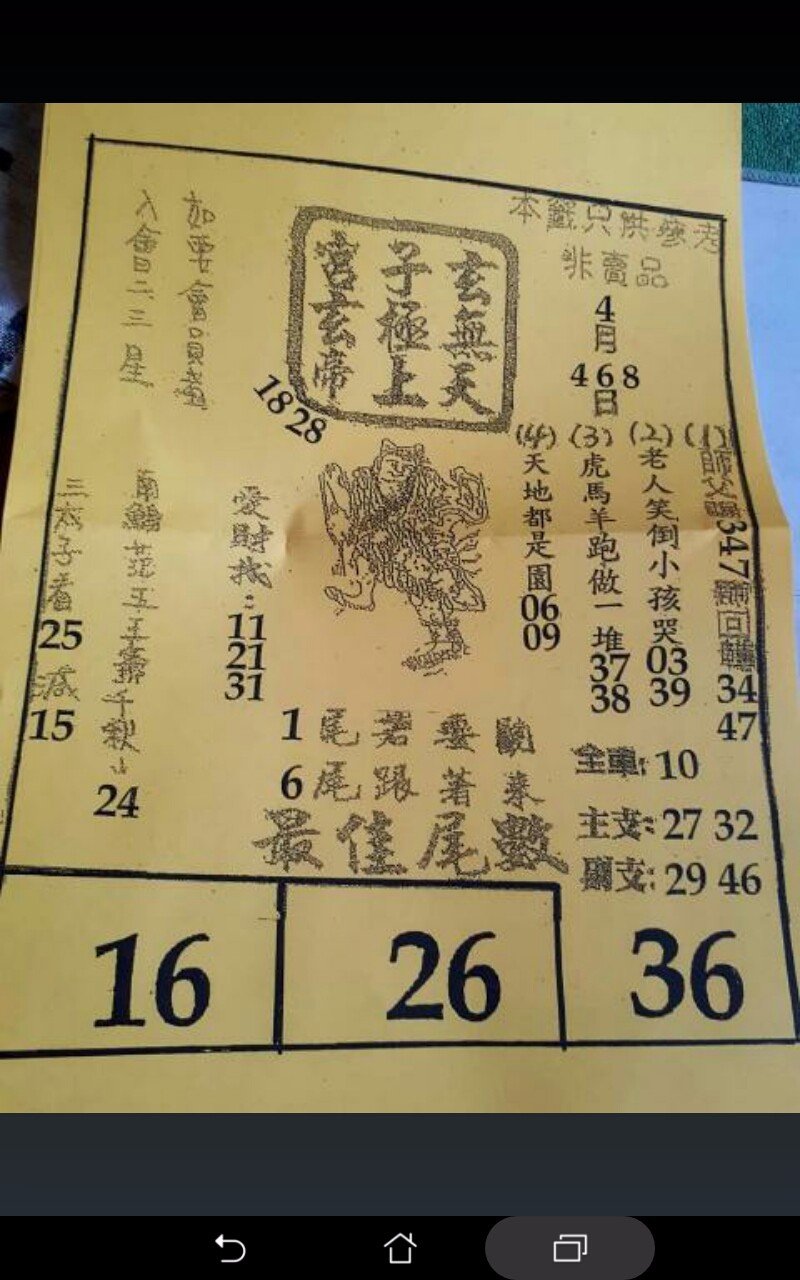 本籤只供參考
非賣品
4
月
4 6 8
日
玄無天
子極上
宮玄帝
18 28
如要會員
入會日二三星
(1)
師父
347
回
34
47
(2)
老人笑倒小孩哭
03
39
(3)
虎馬羊跑做一堆
37
38
(4)
天地都是園
06
09
愛財找:
11
21
31
南鯤
五王
千秋
24
三太子看
25
減
15
1尾若要
6尾跟著來
最佳尾數
全車:10
主支:27 32
副支:29 46
16
26
36